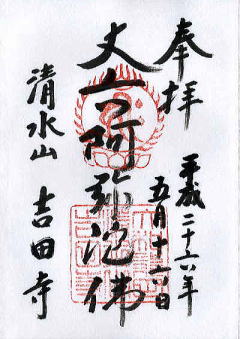 奉拝
平成二十六年
五月十六日
丈六阿弥陀佛
清水山 吉田寺